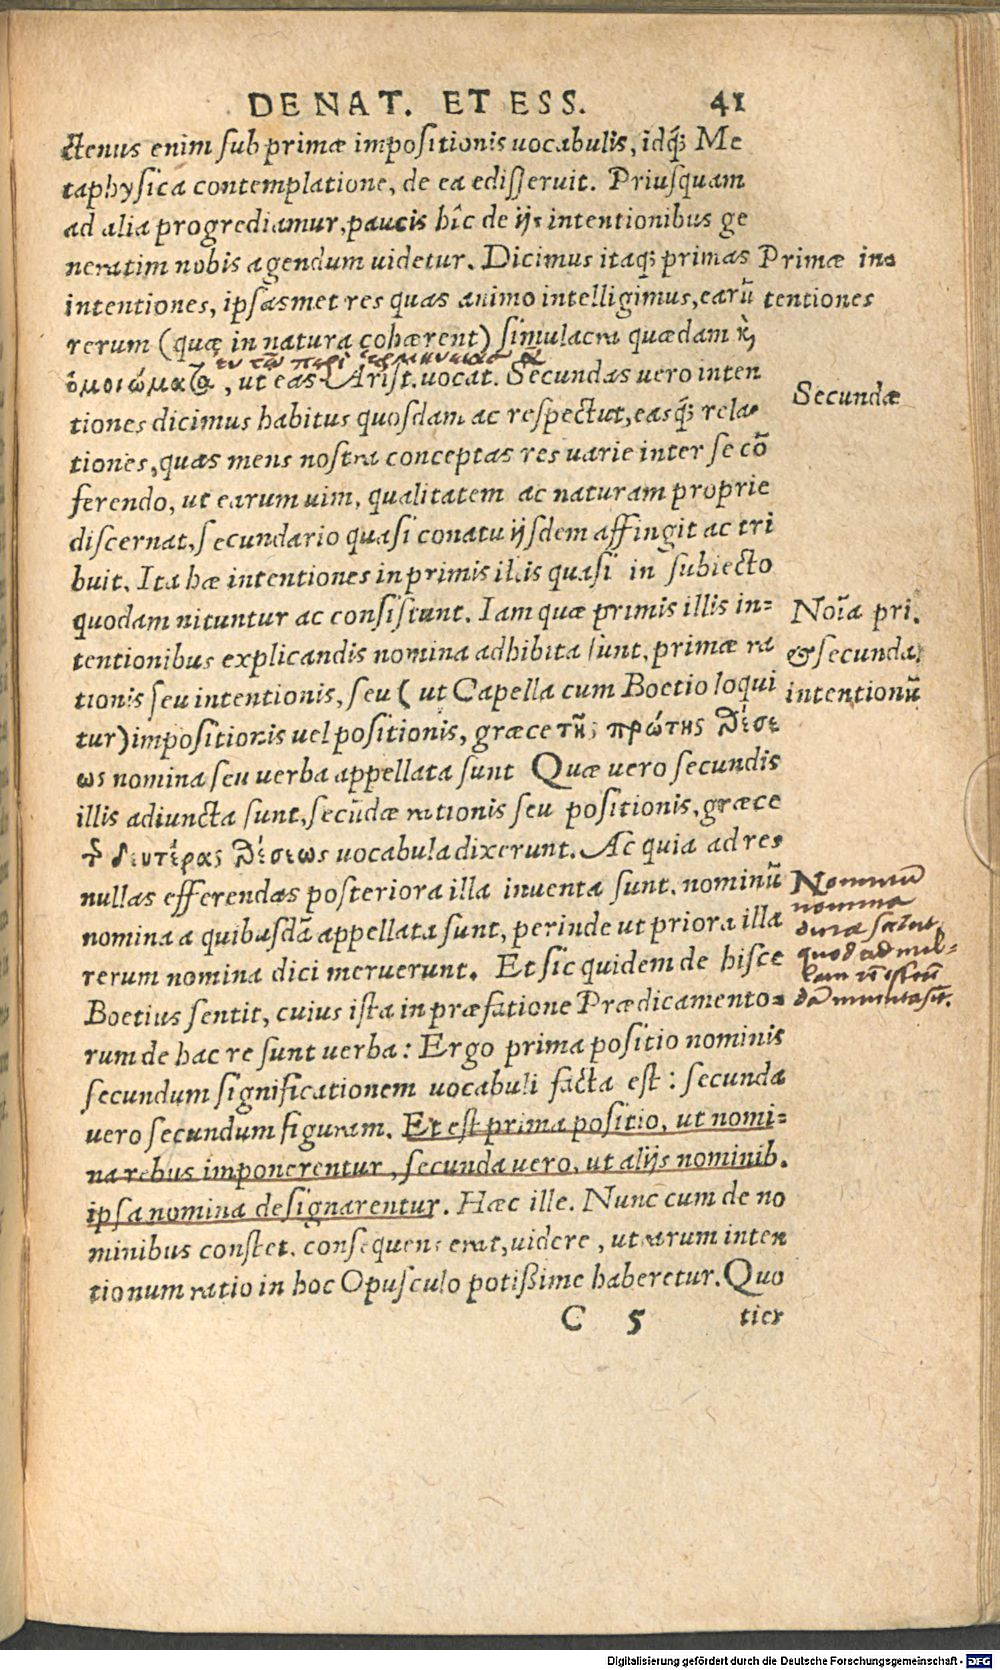 DE NAT. ET ESS. 41
ctenus enim sub primæ impositionis uocabulis, idq́; Me
taphysica contemplatione, de ea edisseruit. Priusquam
ad alia progrediamur, paucis hîc de ijs intentionibus ge
neratim nobis agendum uidetur. Dicimus itaq; primas
Primæ in⸗
intentiones, ipsasmet res quas animo intelligimus, earũ
tentiones
rerum (quæ in natura cohærent) simulacra quædam ϗ̀
ἐν τῷ περὶ ἑρμηνείας ᾱ
ὁμοιώματα, ut eas Arist. uocat. Secundas uero inten
Secundæ
tiones dicimus habitus quosdam ac respectus, easq́; rela⸗
tiones, quas mens nostra conceptas res uarie inter se cõ
ferendo, ut earum uim, qualitatem ac naturam proprie
discernat, secundario quasi conatu ijsdem affingit ac tri
buit. Ita hæ intentiones in primis illis quasi in subiecto
quodam nituntur ac consistunt. Iam quæ primis illis in⸗
Noĩa pri.
tentionibus explicandis nomina adhibita sunt, primæ ra
& secunda.
tionis seu intentionis, seu ( ut Capella cum Boetio loqui
intentionũ
tur) impositionis uel positionis, græce τῆς πρώτης θέσε
ως nomina seu uerba appellata sunt Quæ uero secundis
illis adiuncta sunt, secũdæ rationis seu positionis, græce
τ̃ δευτέρας θέσεως uocabula dixerunt. Ac quia ad res
nullas efferendas posteriora illa inuenta sunt, nominũ
Nominũ
nomina a quibusdã appellata sunt, perinde ut priora illa
nomina
rerum nomina dici meruerunt. Et sic quidem de hisce
quod ad nul⸗
Boetius sentit, cuius ista in præfatione Prædicamento⸗
rum de hac re sunt uerba: Ergo prima positio nominis
secundum significationem uocabuli facta est: secunda
uero secundum figuram. Et est prima positio, ut nomi⸗
na rebus imponerentur, secunda uero, ut alijs nominib.
ipsa nomina designarentur. Hæc ille. Nunc cum de no
minibus constet, consequens erat, uidere, utrarum inten
tionum ratio in hoc Opusculo potißime haberetur. Quo
C 5 ties
Digitalisierung gefördert durch die Deutsche Forschungsgemeinschaft - DFG